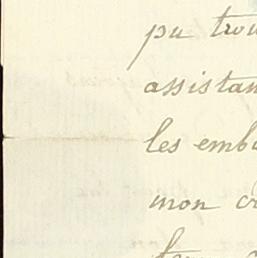 pu trou
assistan
les emb
mon c